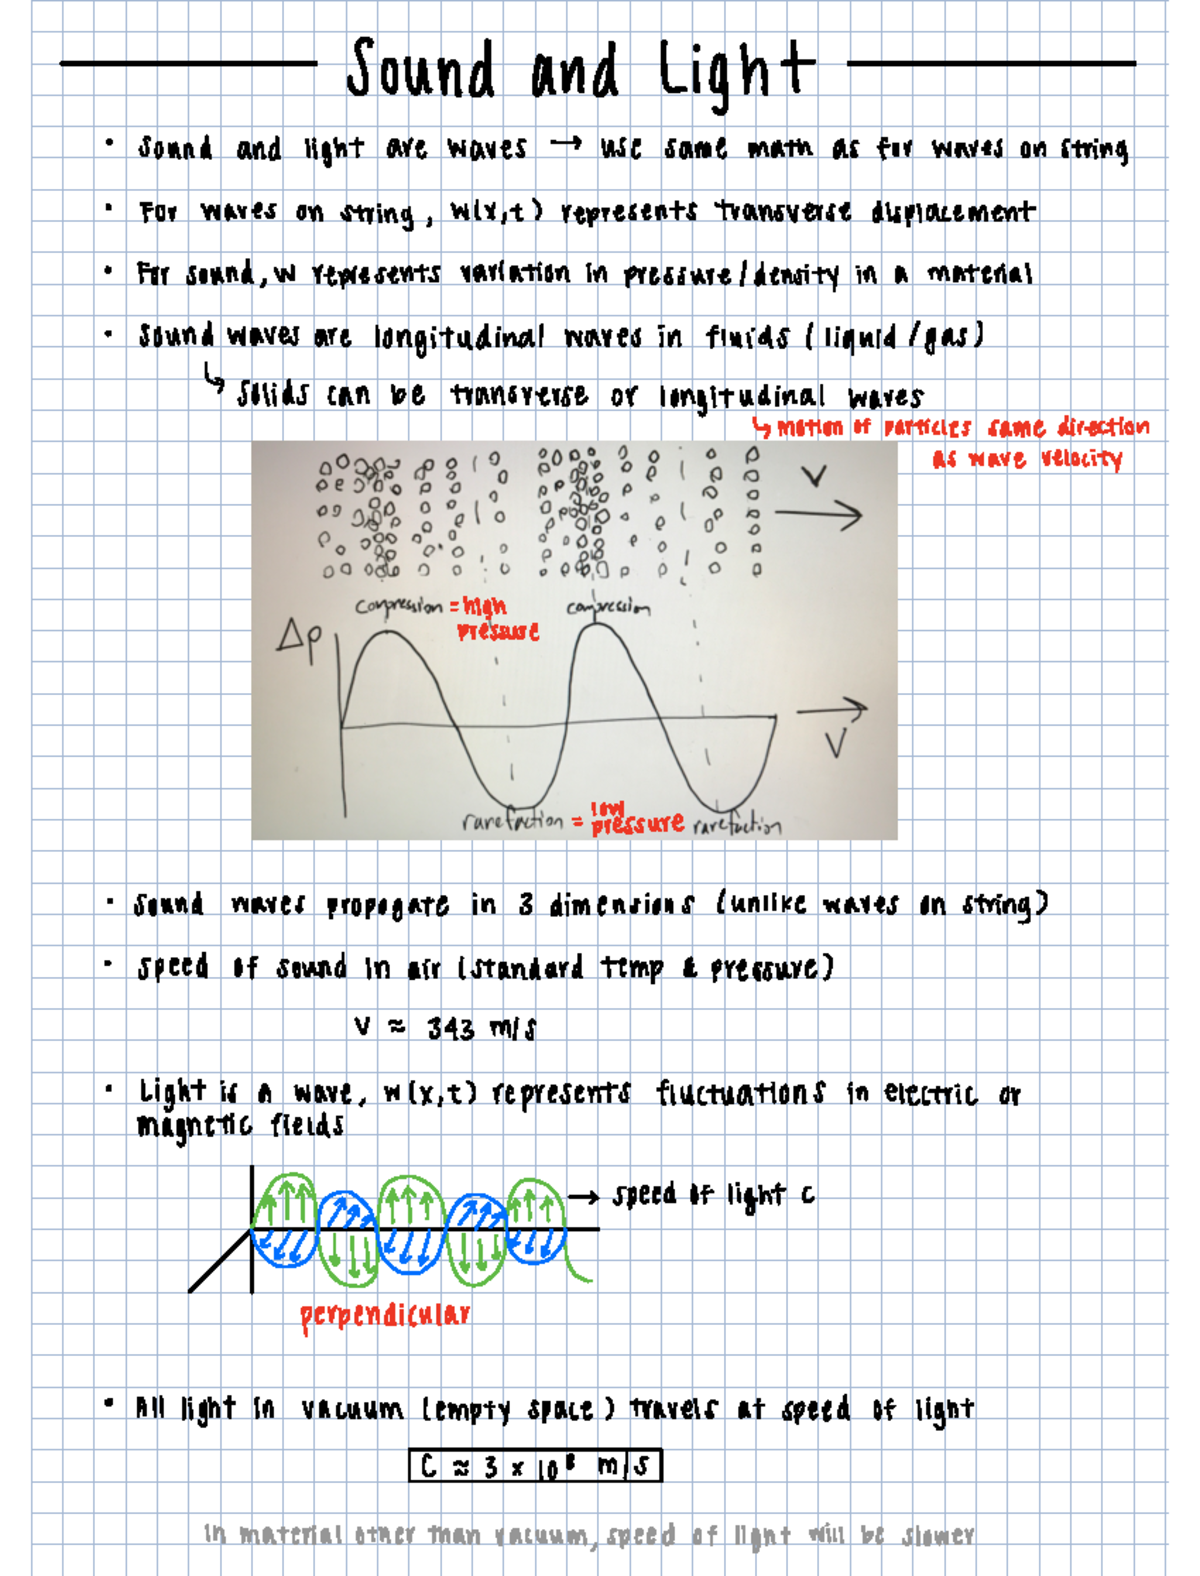 Sound and Light
• Sound and light are waves → use same math as for waves on string
• For waves on string, w(x,t) represents transverse displacement
• For sound, w represents variation in pressure/density in a material
• Sound waves are longitudinal waves in fluids (liquid/gas)
↳ Solids can be transverse or longitudinal waves
↳ motion of particles same direction
as wave velocity
V
compression = high
pressure
compression
Δp
V
rarefaction = low
pressure
rarefaction
• Sound waves propagate in 3 dimensions (unlike waves on string)
• speed of sound in air (standard temp & pressure)
v ≈ 343 m/s
• Light is a wave, w(x,t) represents fluctuations in electric or
magnetic fields
→ speed of light c
perpendicular
• All light in vacuum (empty space) travels at speed of light
C ≈ 3 x 10⁸ m/s
In material other than vacuum, speed of light will be slower